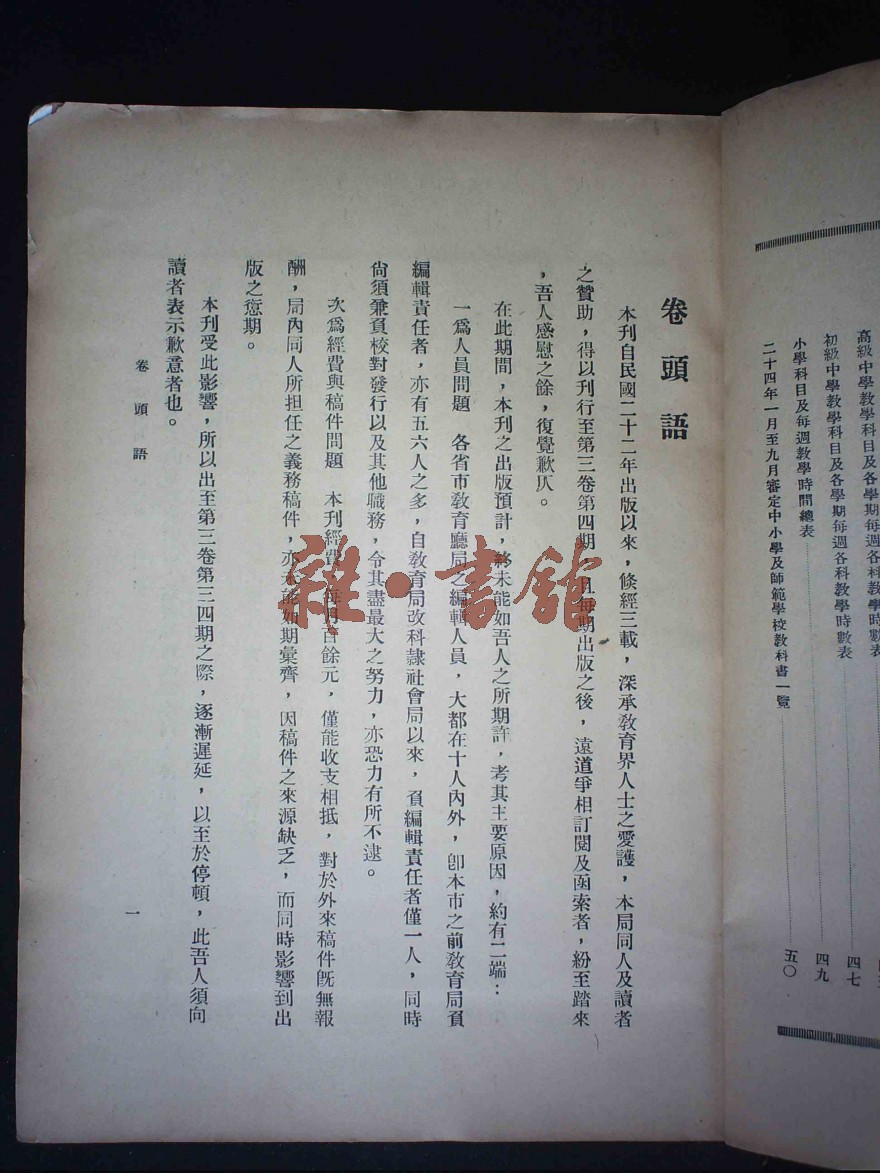 高級中學教學科目及各學期每週各科教學時數表
初級中學教學科目及各學期每週各科教學時數表
四七
小學科目及每週教學時間總表
四九
二十四年一月至九月審定中小學及師範學校教科書一覽
五〇
卷頭語
本刊自民國二十二年出版以來，倏經三載，深承教育界人士之愛護，本局同人及讀者
之贊助，得以刊行至第三卷第四期，且每期出版之後，遠道爭相訂閱及函索者，紛至踏來
，吾人感慰之餘，復覺歉仄。
在此期間，本刊之出版預計，終未能如吾人之所期許，考其主要原因，約有二端：
一爲人員問題　各省市教育廳局之編輯人員，大都在十人內外，卽本市之前教育局負
編輯責任者，亦有五六人之多，自教育局改科隸社會局以來，負編輯責任者僅一人，同時
尙須兼負校對發行以及其他職務，令其盡最大之努力，亦恐力有所不逮。
次爲經費與稿件問題　本刊經費，每月百餘元，僅能收支相抵，對於外來稿件旣無報
酬，局內同人所担任之義務稿件，亦未能如期彙齊，因稿件之來源缺乏，而同時影響到出
版之愆期。
本刊受此影響，所以出至第三卷第三四期之際，逐漸遲延，以至於停頓，此吾人須向
讀者表示歉意者也。
卷頭語
一
雜·書館